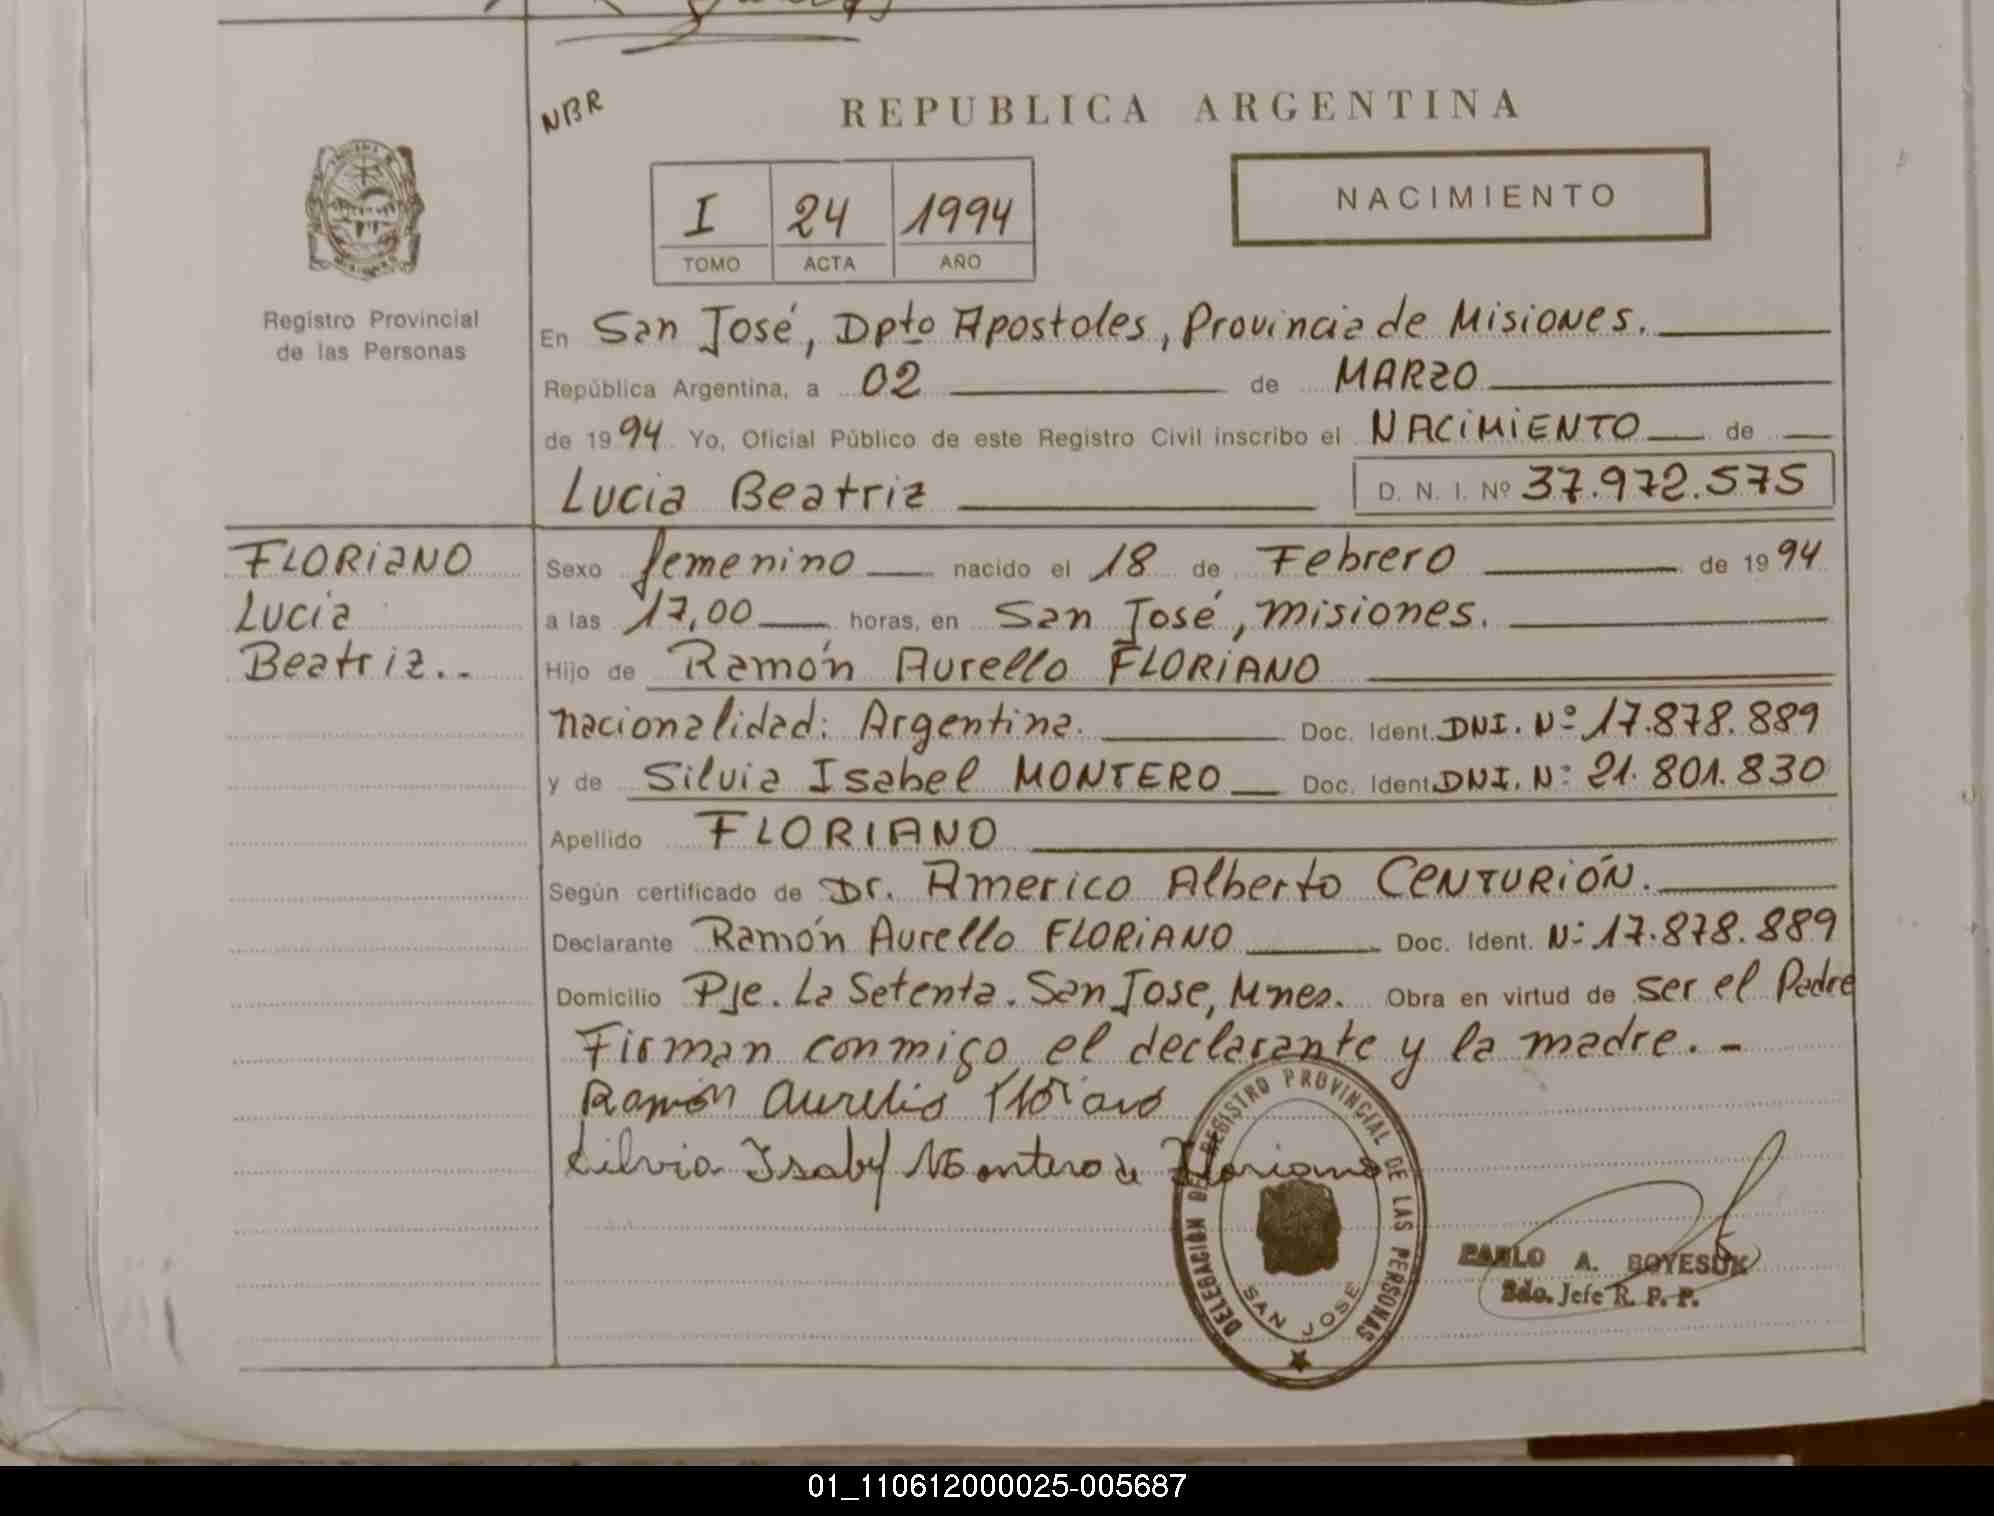 NBR
REPUBLICA ARGENTINA
I 24 1994
TOMO ACTA AÑO
NACIMIENTO
Registro Provincial
de las Personas
En San José, Dpto Apostoles, Provincia de Misiones.
República Argentina, a 02 de MARZO
de 1994 Yo, Oficial Público de este Registro Civil inscribo el NACIMIENTO de
Lucia Beatriz D. N. I. Nº 37.972.575
FLORIANO
Lucia
Beatriz..
Sexo femenino nacido el 18 de Febrero de 1994
a las 17,00 horas, en San José, misiones.
Hijo de Ramón Aurello FLORIANO
nacionalidad: Argentina. Doc. Ident. DNI. Nº 17.878.889
y de Silvia Isabel MONTERO Doc. Ident. DNI. Nº 21.801.830
Apellido FLORIANO
Según certificado de Dr. Americo Alberto CENTURIÓN.
Declarante Ramón Aurello FLORIANO Doc. Ident. Nº 17.878.889
Domicilio Pje. La Setenta. San Jose, Mnes. Obra en virtud de ser el Padre
Firman conmigo el declarante y la madre. -
Ramón Aurelio Floriano
Silvia Isabel Montero de Floriano
DELEGACIÓN DEL REGISTRO PROVINCIAL DE LAS PERSONAS
SAN JOSÉ
PABLO A. BOYESUK
Sdo. Jefe R. P. P.
01_110612000025-005687